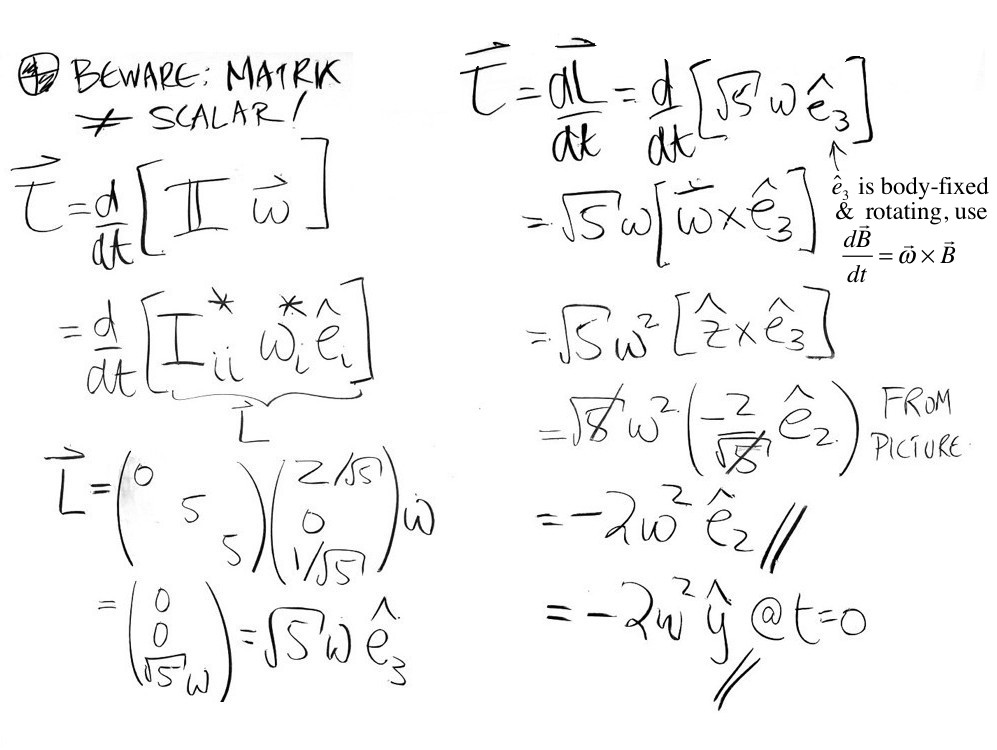 ⊕ BEWARE: MATRIX
≠ SCALAR!
τ⃗ = d/dt [ 𝕀 ω⃗ ]
= d/dt [ I*ᵢᵢ ω*ᵢ êᵢ ]
L⃗
L⃗ = (0 5 5) (2/√5 0 1/√5) ω
= (0 0 √5 ω) = √5 ω ê₃
τ⃗ = dL⃗/dt = d/dt [√5 ω ê₃]
↑
ê₃ is body-fixed
& rotating, use
dB⃗/dt = ω⃗ × B⃗
= √5 ω [ω⃗ × ê₃]
= √5 ω² [ẑ × ê₃]
= √5 ω² (−2/√5 ê₂) FROM
PICTURE
= −2ω² ê₂ //
= −2ω² ŷ @ t=0
//